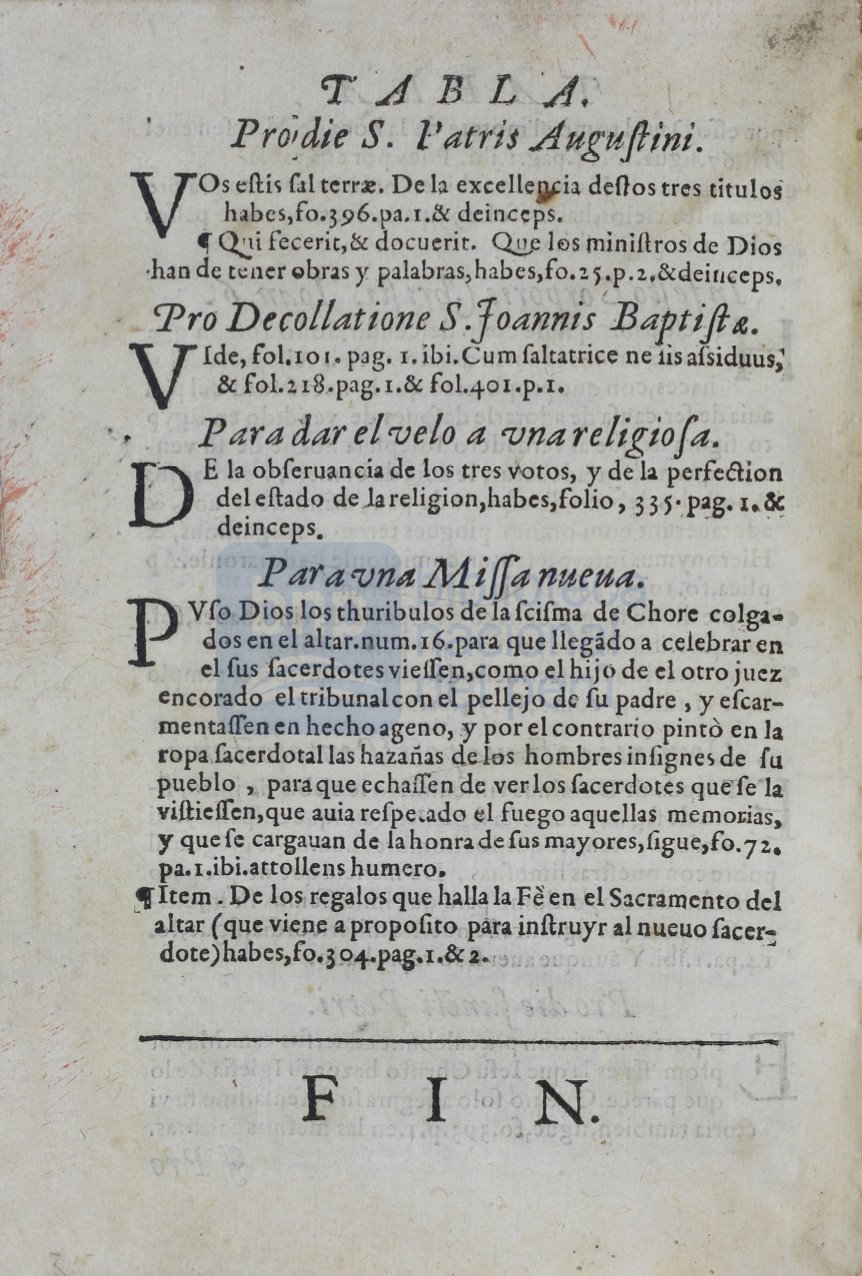 TABLA.
Pro die S. Patris Augustini.
VOs eſtis ſal terræ. De la excellencia deſtos tres titulos
habes,fo.396.pa.1.& deinceps.
¶ Qui fecerit,& docuerit. Que los miniſtros de Dios
han de tener obras y palabras,habes,fo.25.p.2.&deinceps.
Pro Decollatione S.Joannis Baptiſtæ.
VIde, fol.101. pag. 1.ibi.Cum ſaltatrice ne ſis aſsiduus,
& fol.218.pag.1.& fol.401.p.1.
Para dar el velo a vna religioſa.
DE la obſeruancia de los tres votos, y de la perfection
del eſtado de la religion,habes,folio, 335. pag. 1.&
deinceps.
Para vna Miſſa nueua.
PVſo Dios los thuribulos de la ſciſma de Chore colga-
dos en el altar.num.16.para que llegãdo a celebrar en
el ſus ſacerdotes vieſſen,como el hijo de el otro juez
encorado el tribunal con el pellejo de ſu padre , y eſcar-
mentaſſen en hecho ageno, y por el contrario pintò en la
ropa ſacerdotal las hazañas de los hombres inſignes de ſu
pueblo , para que echaſſen de ver los ſacerdotes que ſe la
viſtieſſen,que auia reſpe.ado el fuego aquellas memorias,
y que ſe cargauan de la honra de ſus mayores,ſigue,fo.72.
pa.1.ibi.attollens humero.
¶ Item . De los regalos que halla la Fè en el Sacramento del
altar (que viene a propoſito para inſtruyr al nueuo ſacer-
dote)habes,fo.304.pag.1.& 2.
FIN.